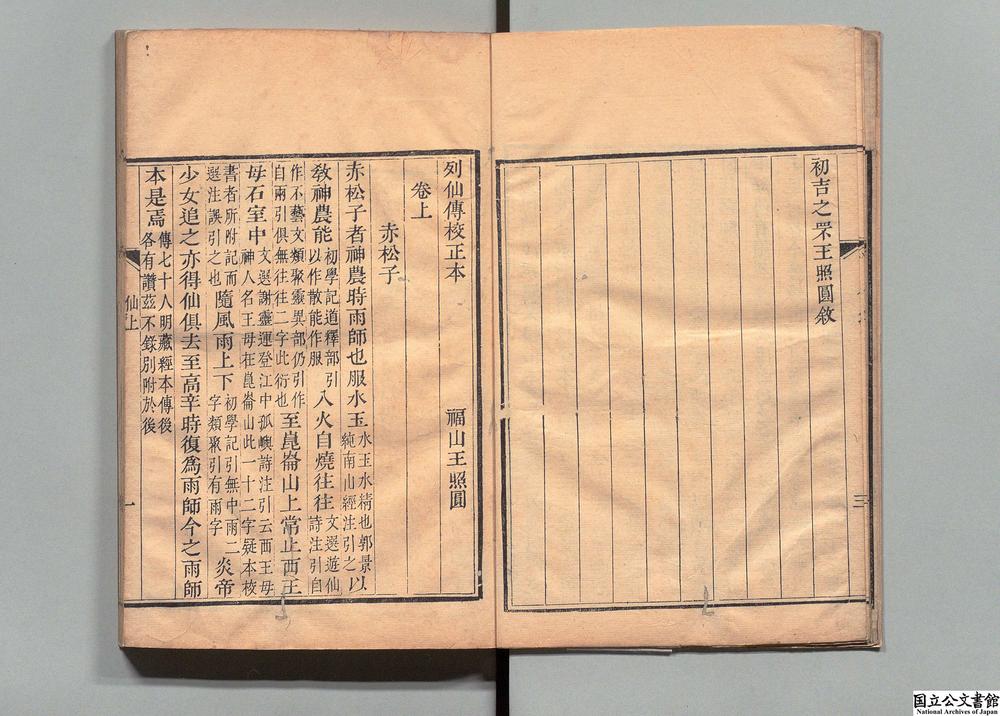 初吉之罘王照圓敘
三
列仙傳校正本　福山王照圓
卷上
赤松子
赤松子者神農時雨師也服水玉水玉水精也郭景純南山經注引之以
敎神農能初學記道釋部引以作散能作服入火自燒往往文選遊仙詩注引自
作不藝文類聚靈異部仍引作自兩引俱無往往二字此衍也至崑崙山上常止西王
母石室中文選謝靈運登江中孤嶼詩注引云西王母神人名王母在崑崙山此一十二字疑本校
書者所附記而選注誤引之也隨風雨上下初學記引無中雨二字類聚引有雨字炎帝
少女追之亦得仙俱去至高辛時復爲雨師今之雨師
本是焉傳七十人明藏經本傳後各有讚茲不錄別附於後
仙上　一
国立公文書館
National Archives of Japan